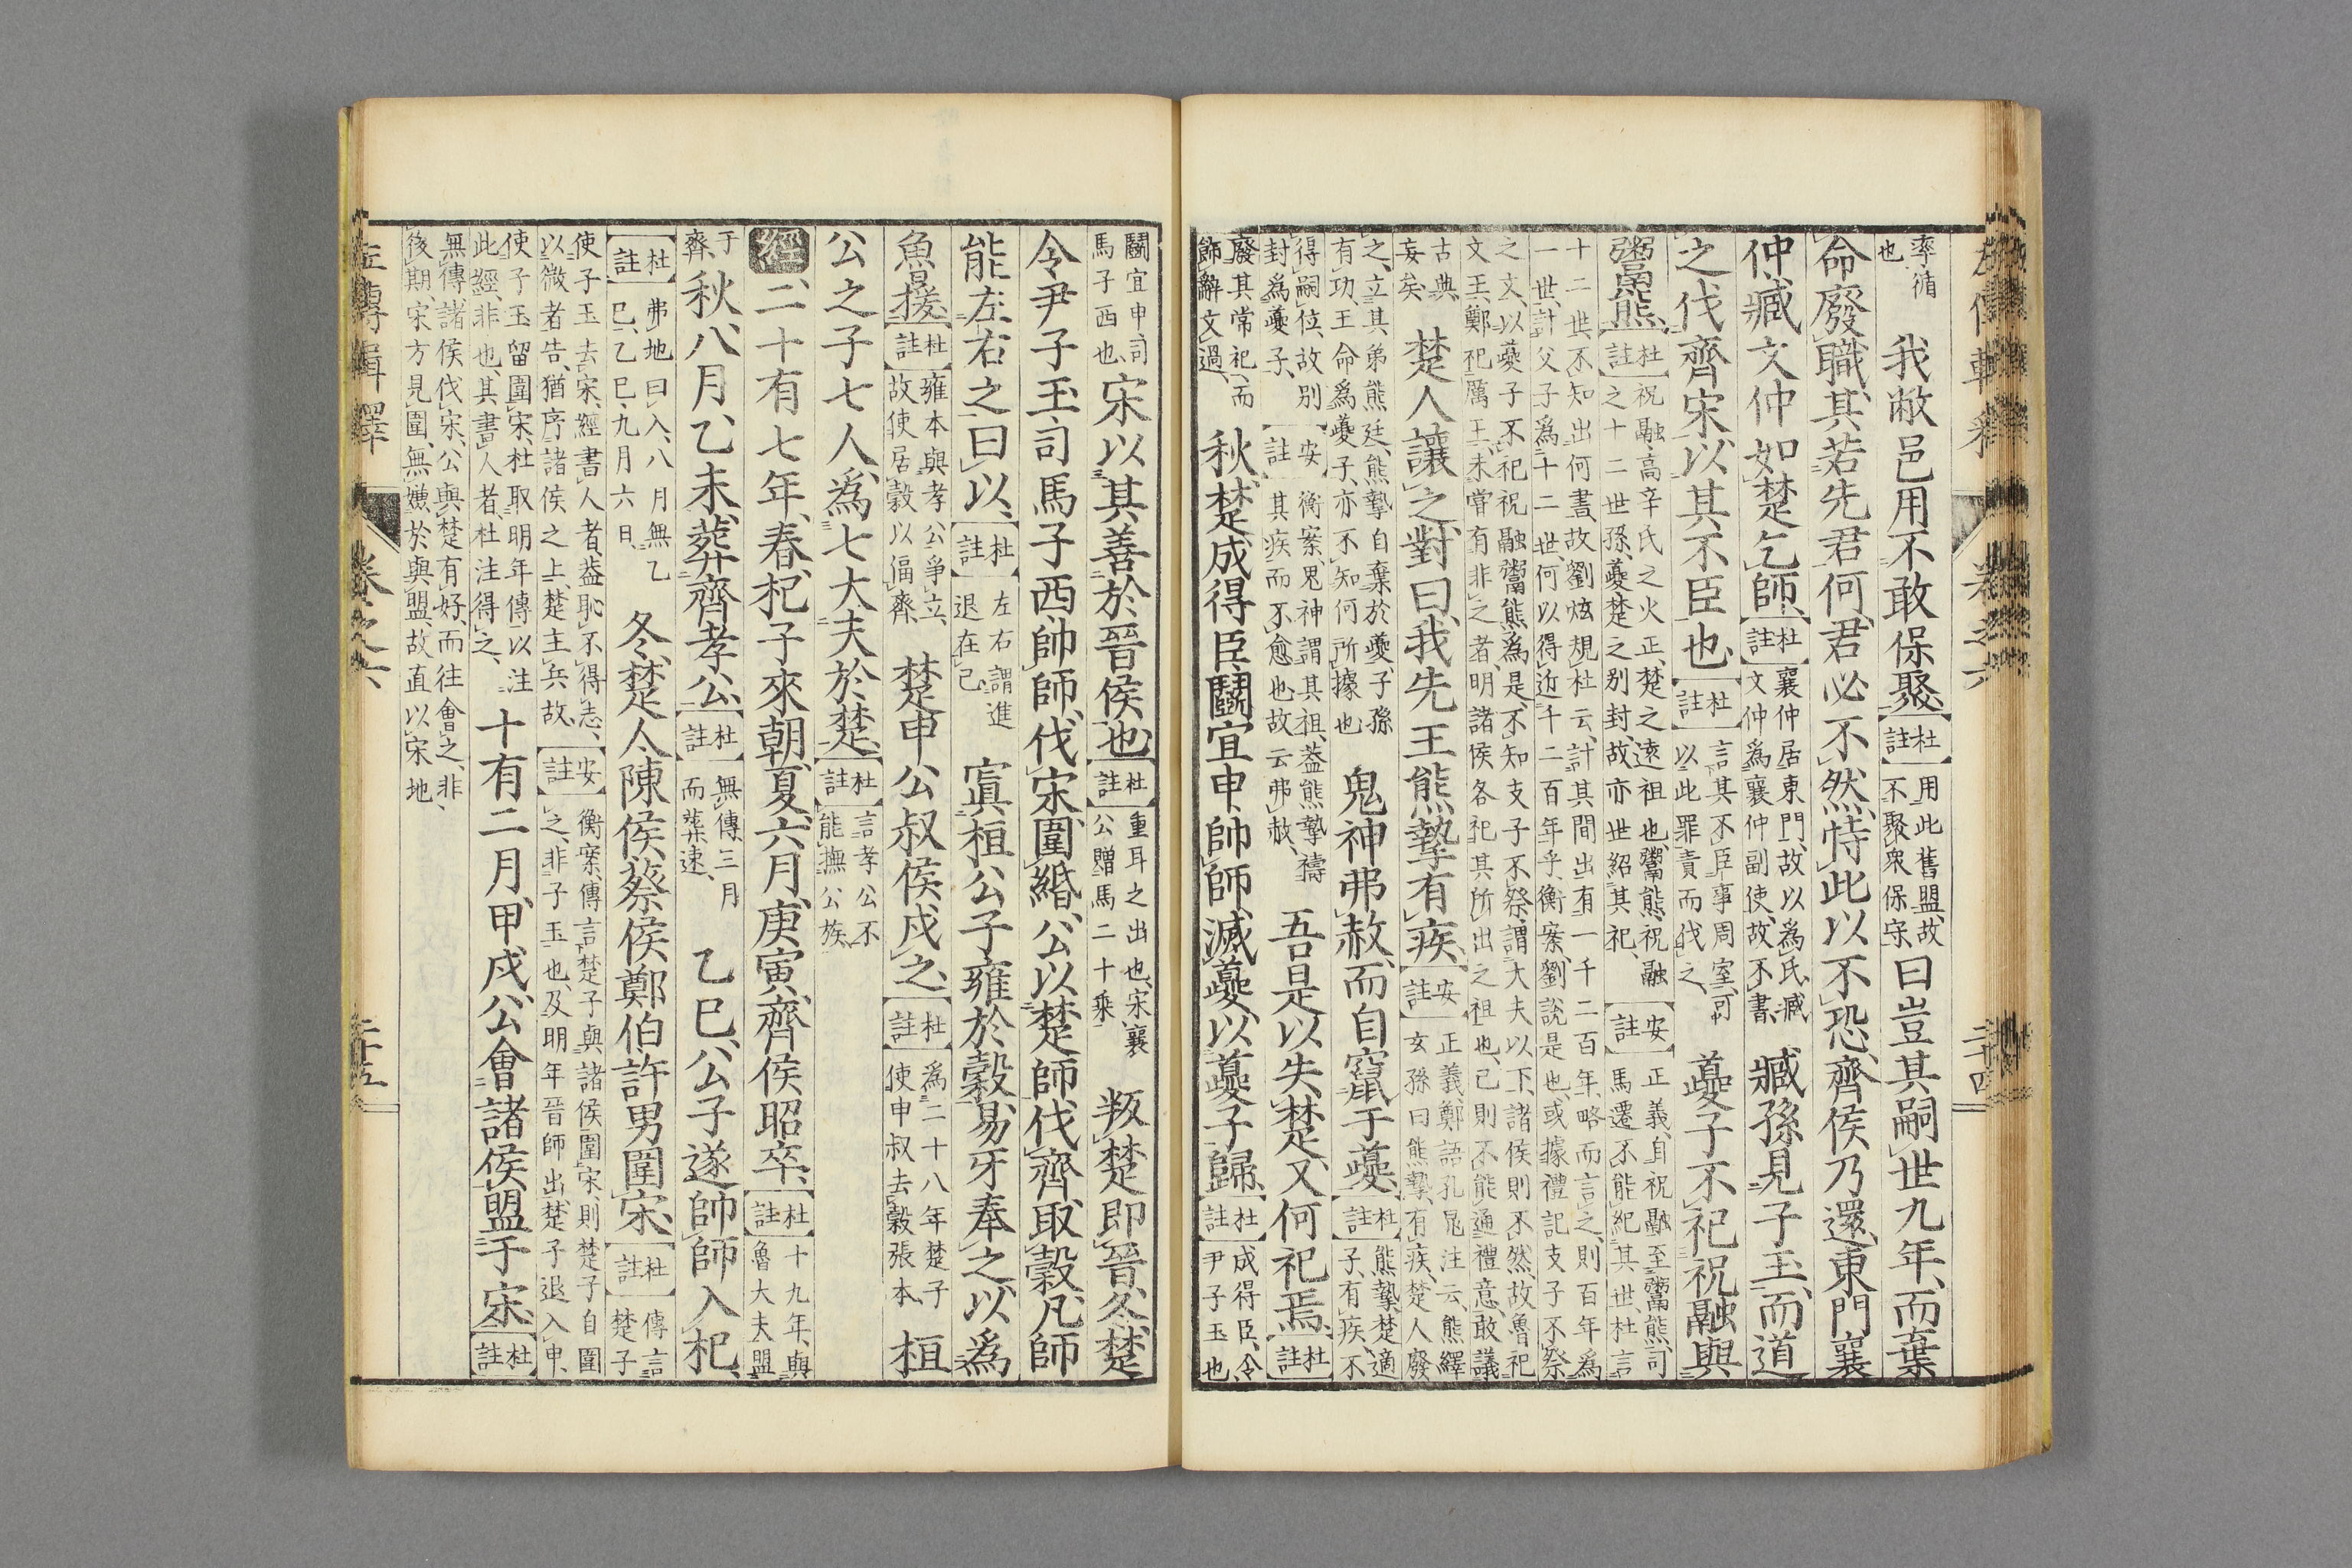 率循
也
我敝邑用不敢保聚杜註
用此舊盟故
不聚衆保守
曰豈其嗣世九年而棄
命廢職其若先君何君必不然恃此以不恐齊侯乃還東門襄
仲臧文仲如楚乞師杜註
襄仲居東門故以爲氏臧
文仲爲襄仲副使故不書
臧孫見子玉而道
之伐齊宋以其不臣也杜註
言其不臣事周室可
以此罪責而伐之
夔子不祀祝融與
鬻熊杜註
祝融高辛氏之火正楚之遠祖也鬻熊祝融
之十二世孫夔楚之别封故亦世紹其祀
安註
正義自祝融至鬻熊司
馬遷不能紀其世杜言
十二世不知出何書故劉炫規杜云計其間出有一千二百年略而言之則百年爲
一世計父子爲十二世何以得近千二百年乎衡案劉說是也或據禮記支子不祭
之文以夔子不祀祝融鬻熊爲是不知支子不祭謂大夫以下諸侯則不然故魯祀
文王鄭祀厲王未嘗有非之者明諸侯各祀其所出之祖也己則不能通禮意敢議
古典
妄矣
楚人讓之對曰我先王熊摯有疾安註
正義鄭語孔晁注云熊繹
玄孫曰熊摯有疾楚人廢
之立其弟熊廷熊摯自棄於夔子孫
有功王命爲夔子亦不知何所據也
鬼神弗赦而自竄于夔杜註
熊摯楚適
子有疾不
得嗣位故别
封爲夔子
安註
衡案鬼神謂其祖葢熊摯禱
其疾而不愈也故云弗赦
吾是以失楚又何祀焉杜註
廢其常祀而
飾辭文過
秋楚成得臣鬬宜申帥師滅夔以夔子歸杜註
成得臣令
尹子玉也
鬬宜申司
馬子西也
宋以其善於晉侯也杜註
重耳之出也宋襄
公贈馬二十乘
叛楚即晉冬楚
令尹子玉司馬子西帥師伐宋圍緡公以楚師伐齊取穀凡師
能左右之曰以杜註
左右謂進
退在己
寘桓公子雍於穀易牙奉之以爲
魯援杜註
雍本與孝公爭立
故使居穀以偪齊
楚申公叔侯戍之杜註
爲二十八年楚子
使申叔去穀張本
桓
公之子七人爲七大夫於楚杜註
言孝公不
能撫公族
經二十有七年春杞子來朝夏六月庚寅齊侯昭卒杜註
十九年與
魯大夫盟
于
齊
秋八月乙未葬齊孝公杜註
無傳三月
而葬速
乙巳公子遂帥師入杞
杜註
弗地曰入八月無乙
巳乙巳九月六日
冬楚人陳侯蔡侯鄭伯許男圍宋杜註
傳言
楚子
使子玉去宋經書人者葢恥不得志
以微者告猶序諸侯之上楚主兵故
安註
衡案傳言楚子與諸侯圍宋則楚子自圍
之非子玉也及明年晉師出楚子退入申
使子玉留圍宋杜取明年傳以注
此經非也其書人者杜注得之
十有二月甲戌公會諸侯盟于宋杜註
無傳諸侯伐宋公與楚有好而往會之非
後期宋方見圍無嫌於與盟故直以宋地
左傳輯釋 卷之六 二十五